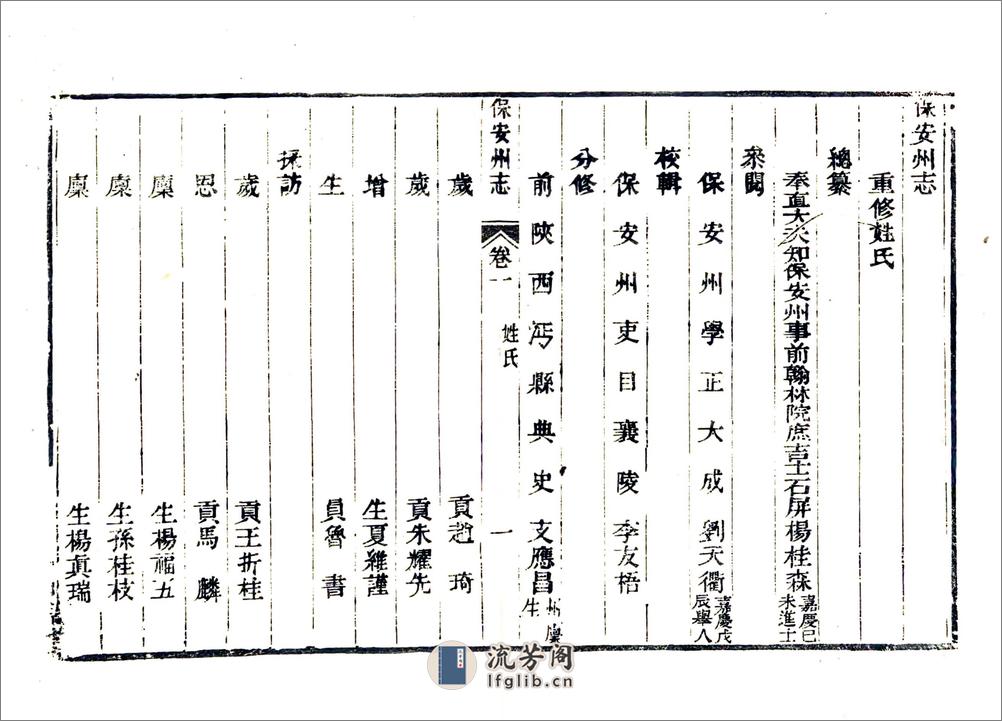 保安州志
重修姓氏
總纂
奉直大夫知保安州事前翰林院庶吉士石屏楊桂森嘉慶己未進士
叅閱
保安州學正大成劉天衢嘉慶戊辰舉人
校輯
保安州吏目襄陵李友梧
分修
前陝西沔縣典史支應昌州廩生
保安州志 卷一 姓氏 一
歲貢趙琦
歲貢朱耀先
增生夏維謹
生員魯書
採訪
歲貢王折桂
恩貢馬麟
廩生楊福五
廩生孫桂枝
廩生楊眞瑞
流芳阁
lfglib.cn